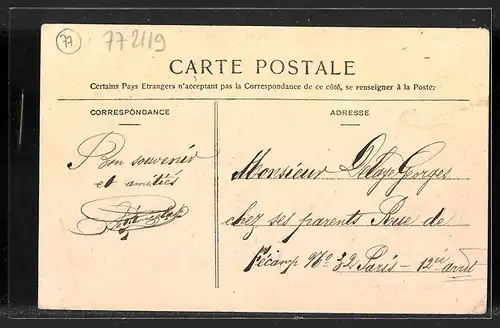 77
77 2119
CARTE POSTALE
Certains Pays Etrangers n'acceptant pas la Correspondance de ce côté, se renseigner à la Poste.
CORRESPONDANCE
ADRESSE
Bon souvenir
et amitiés
Monsieur Delaye Georges
chez ses parents Rue de
Fécamp No 32 Paris - 12ie